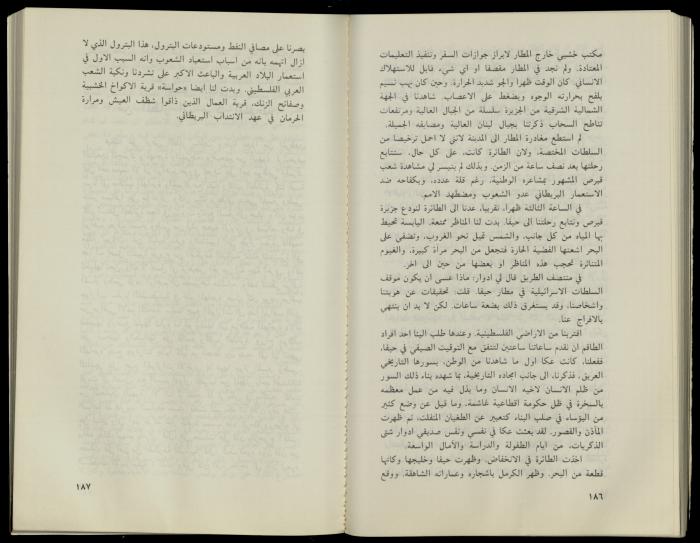 مكتب خشبي خارج المطار لابراز جوازات السفر وتنفيذ التعليمات
المعتادة. ولم نجد في المطار مقصفا او اي شيء قابل للاستهلاك
الانساني. كان الوقت ظهرا والجو شديد الحرارة، وحين كان يهب نسيم
يلفح بحرارته الوجوه ويضغط على الاعصاب. شاهدنا في الجهة
الشمالية الشرقية من الجزيرة سلسلة من الجبال العالية ومرتفعات
تناطح السحاب ذكرتنا بجبال لبنان العالية ومصايفه الجميلة.
لم استطع مغادرة المطار الى المدينة لانني لا احمل ترخيصا من
السلطات المختصة، ولان الطائرة كانت، على كل حال، ستتابع
رحلتها بعد نصف ساعة من الزمن. وبذلك لم يتيسر لي مشاهدة شعب
قبرص المشهور بمشاعره الوطنية، رغم قلة عدده، وبكفاحه ضد
الاستعمار البريطاني عدو الشعوب ومضطهد الامم.
في الساعة الثالثة ظهرا، تقريبا، عدنا الى الطائرة لنودع جزيرة
قبرص ونتابع رحلتنا الى حيفا. بدت لنا المناظر ممتعة، اليابسة تحيط
بها المياه من كل جانب، والشمس تميل نحو الغروب، وتضفي على
البحر اشعتها الفضية الحارة فتجعل من البحر مرآة كبيرة، والغيوم
المتناثرة تحجب هذه المناظر او بعضها من حين الى اخر.
في منتصف الطريق قال لي ادوار: ماذا عسى ان يكون موقف
السلطات الاسرائيلية في مطار حيفا. قلت: تحقيقات عن هويتنا
واشخاصنا، وقد يستغرق ذلك بضعة ساعات. لكن لا بد ان ينتهي
بالافراج عنا.
اقتربنا من الاراضي الفلسطينية. وعندها طلب الينا احد افراد
الطاقم ان نقدم ساعاتنا ساعتين لتتفق مع التوقيت الصيفي في حيفا،
ففعلنا، كانت عكا اول ما شاهدنا من الوطن، بسورها التاريخي
العريق، فذكرنا، الى جانب امجاده التاريخية، بما شهده بناء ذلك السور
من ظلم الانسان لاخيه الانسان وما بذل فيه من عمل معظمه
بالسخرة في ظل حكومة اقطاعية غاشمة، وما قيل عن وضع كثير
من البؤساء في صلب البناء كتعبير عن الطغيان المتفلت، ثم ظهرت
المآذن والقصور. لقد بعثت عكا في نفسي ونفس صديقي ادوار شتى
الذكريات، من ايام الطفولة والدراسة والآمال الواسعة.
اخذت الطائرة في الانخفاض. وظهرت حيفا وخليجها وكانها
قطعة من البحر. وظهر الكرمل باشجاره وعماراته الشاهقة. ووقع
١٨٦
بصرنا على مصافي النفط ومستودعات البترول، هذا البترول الذي لا
ازال اتهمه بانه من اسباب استعباد الشعوب وانه السبب الاول في
استعمار البلاد العربية والباعث الاكبر على تشردنا ونكبة الشعب
العربي الفلسطيني. وبدت لنا ايضا «حواسة» قرية الاكواخ الخشبية
وصفائح الزنك، قرية العمال الذين ذاقوا شظف العيش ومرارة
الحرمان في عهد الانتداب البريطاني.
١٨٧